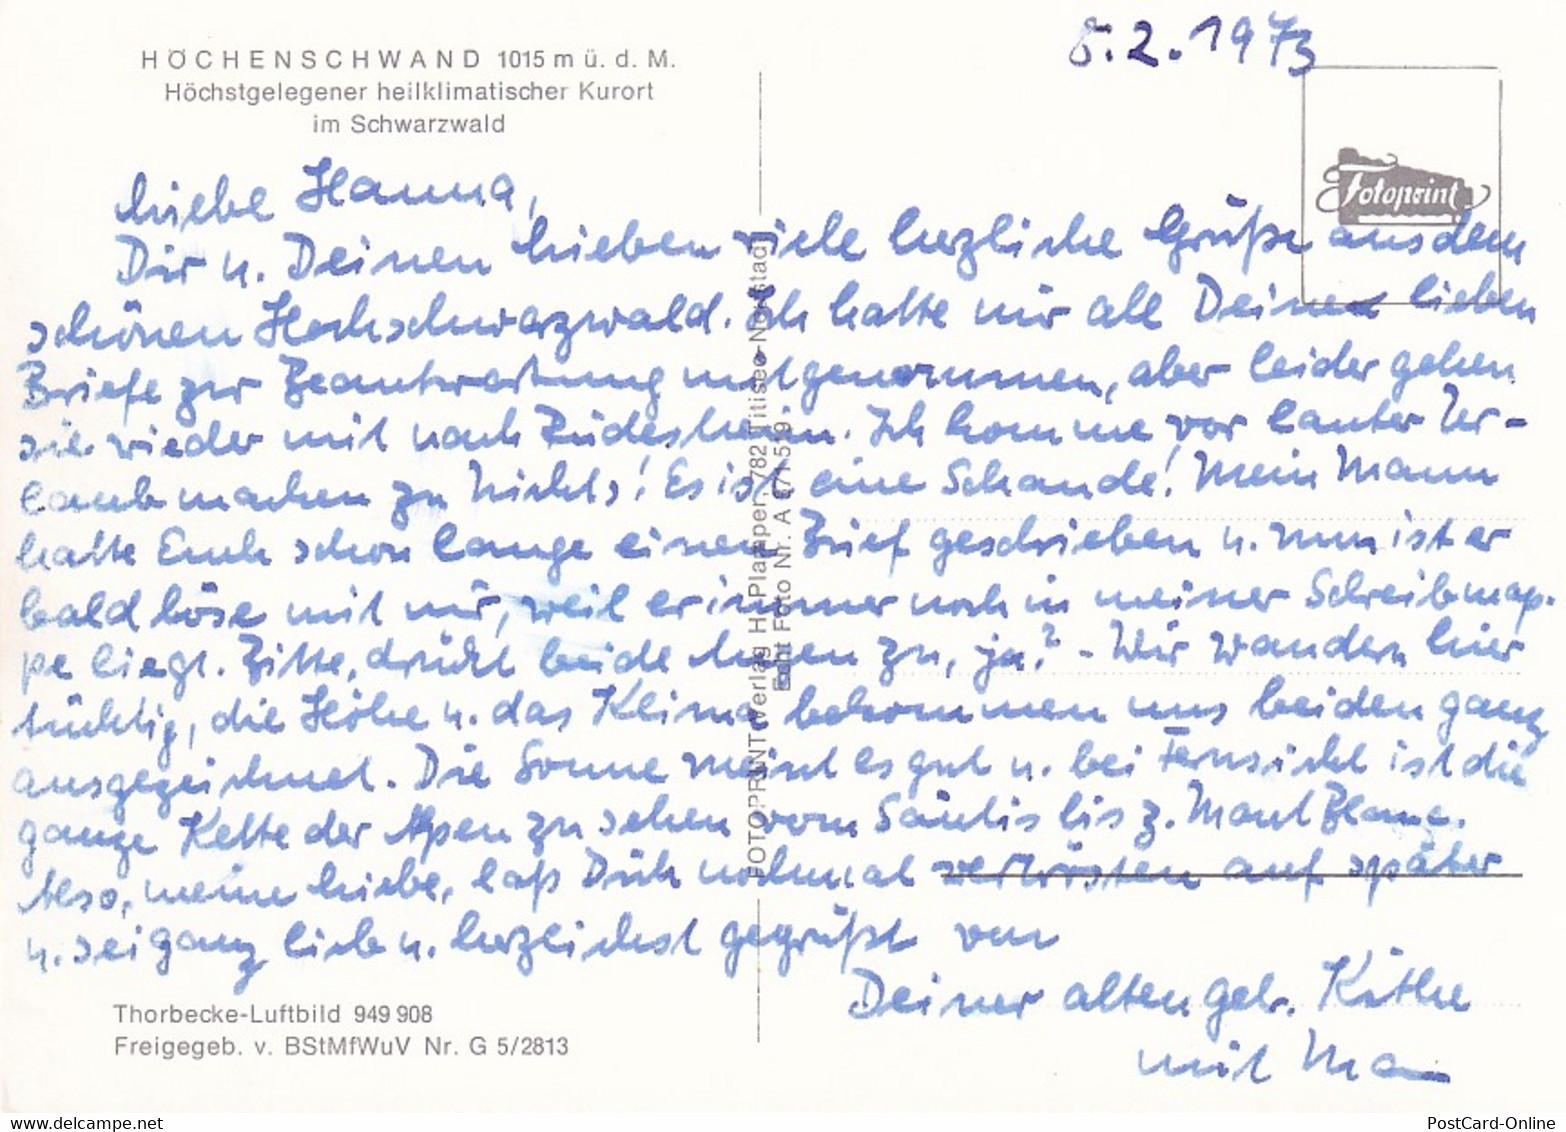 HÖCHENSCHWAND 1015 m ü. d. M.
Höchstgelegener heilklimatischer Kurort
im Schwarzwald
8.2.1973
Fotoprint
Liebe Hanna,
Dir u. Deinen Lieben viele herzliche Grüße aus dem
schönen Hochschwarzwald. Ich hatte mir all Deine lieben
Briefe zur Beantwortung mitgenommen, aber leider gehen
sie wieder mit nach Rüdesheim. Ich komme vor lauter Ur-
laub machen zu Nichts! Es ist eine Schande! Mein Mann
hatte Euch schon lange einen Brief geschrieben u. nun ist er
bald böse mit mir, weil er immer noch in meiner Schreibmap-
pe liegt. Bitte, drückt beide Augen zu, ja? - Wir wandern hier
tüchtig, die Höhe u. das Klima bekommen uns beiden ganz
ausgezeichnet. Die Sonne meint es gut u. bei Fernsicht ist die
ganze Kette der Alpen zu sehen vom Säntis bis z. Mont Blanc.
Also, meine Liebe, laß Dich nochmal vertrösten auf später
u. sei ganz lieb u. herzlichst gegrüßt von
Deiner alten Käthe
mit Mann
FOTOPRINT-Verlag H. Plamper, 782 Titisee-Neustadt
Echt Foto Nr. A
Thorbecke-Luftbild 949 908
Freigegeb. v. BStMfWuV Nr. G 5/2813
PostCard-Online